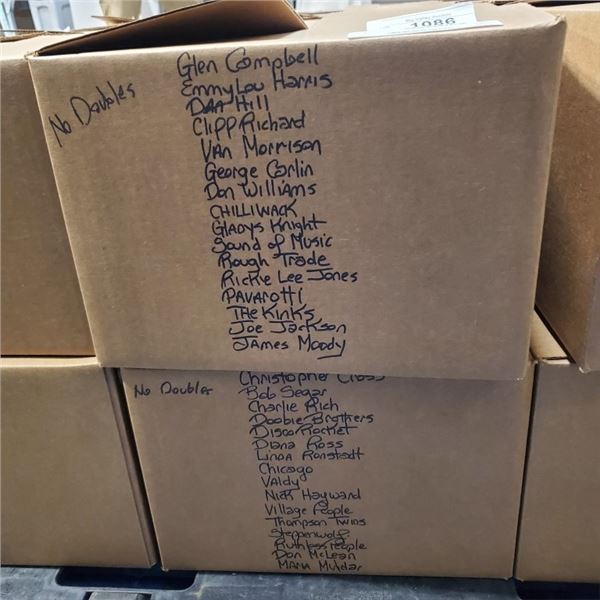 1086
No Doubles
Glen Campbell
EmmyLou Harris
Dan Hill
Cliff Richard
VAN Morrison
George Carlin
Don Williams
CHILLIWACK
GlADYS Knight
Sound of Music
Rough Trade
Rickie Lee Jones
PAVArotti
THE KinKs
Joe Jackson
JAmes Moody
No Doubles
Christopher Cross
Bob Segar
Charlie Rich
Doobie Brothers
Disco Rocket
Diana Ross
LinDA Ronstadt
Chicago
VAldy
Nick Hayward
Village People
Thompson Twins
Steppenwolf
Ruthless People
Don McLean
MARIA Muldar